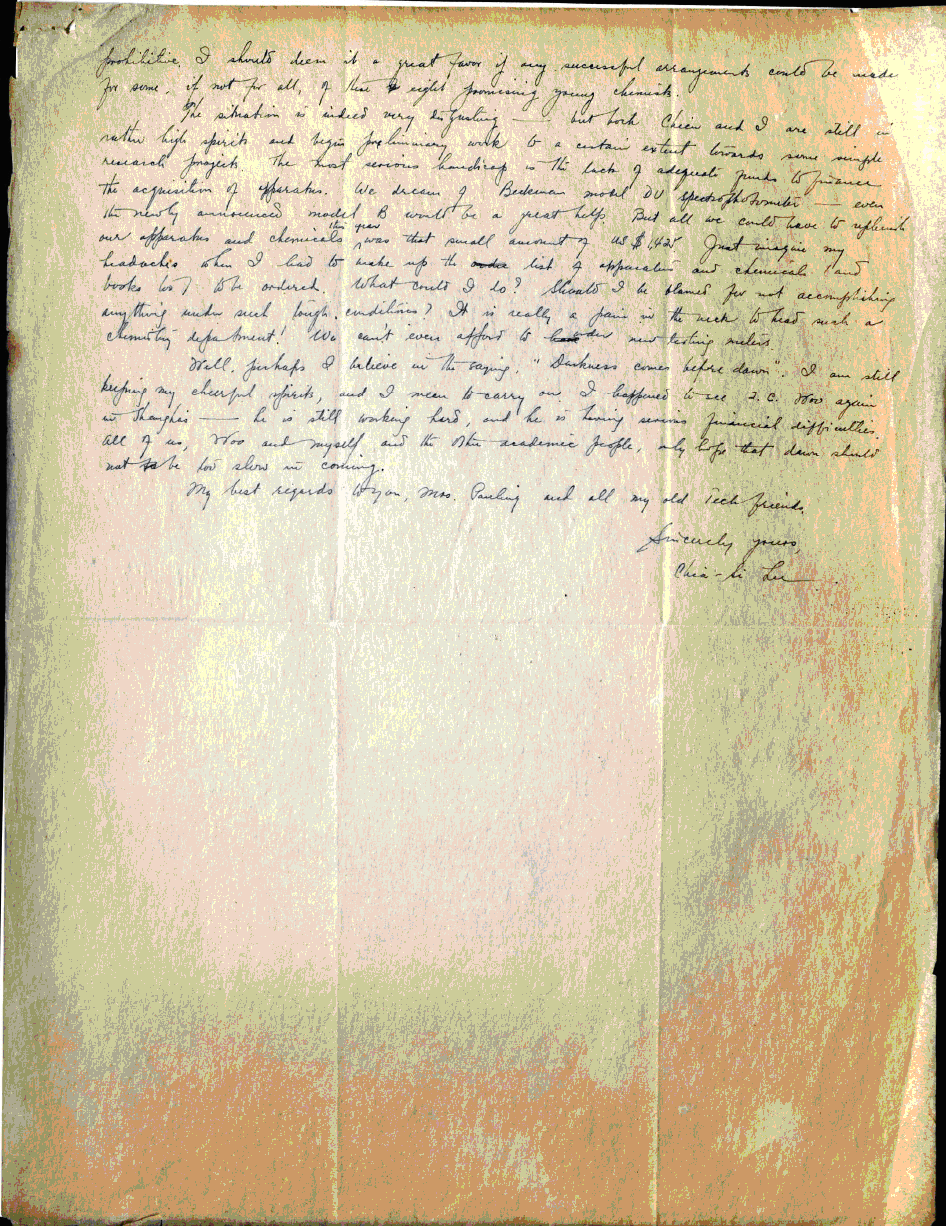 prohibitive. I should deem it a great favor if any successful arrangements could be made
for some, if not for all, of these eight promising young chemists.
The situation is indeed very disgusting — but both Chien and I are still in
rather high spirits and begin preliminary work to a certain extent towards some simple
research projects. The most serious handicap is the lack of adequate funds to finance
the acquisition of apparatus. We dream of Beckman model DU spectrophotometer — even
the newly announced model B would be a great help. But all we could have to replenish
our apparatus and chemicals this year was that small amount of US $1,425. Just imagine my
headaches when I had to make up the list of apparatus and chemicals (and
books too) to be ordered. What could I do? Should I be blamed for not accomplishing
anything under such tough conditions? It is really a pain in the neck to head such a
chemistry department! We can't even afford to order new testing meters.
Well, perhaps I believe in the saying, "Darkness comes before dawn". I am still
keeping my cheerful spirits, and I mean to carry on. I happened to see S. C. Woo again
in Shanghai — he is still working hard, and he is having serious financial difficulties.
All of us, Woo and myself and the other academic people, only hope that dawn should
not be too slow in coming.
My best regards to you, Mrs. Pauling and all my old Tech friends.
Sincerely yours,
Chia-si Lu